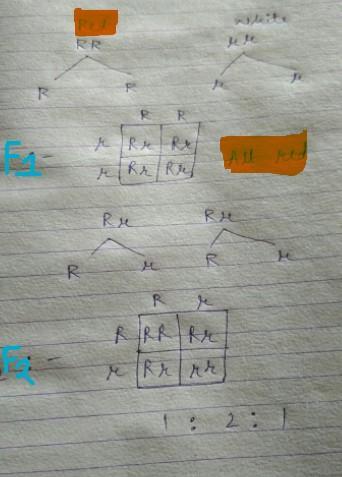 Red white
RR rr
R R r r
R R
F1 - r Rr Rr All red
r Rr Rr
Rr Rr
R r R r
R r
R RR Rr
F2 - r Rr rr
1 : 2 : 1